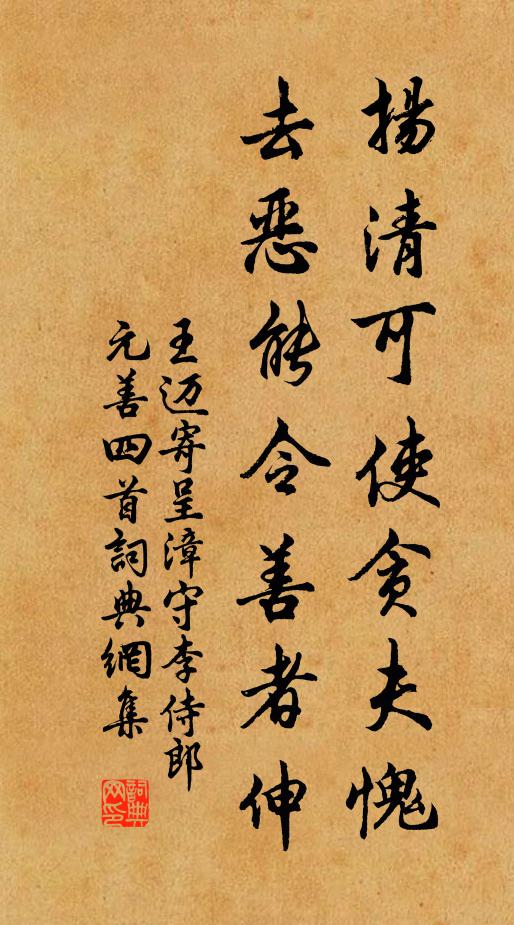 揚清可使貪夫愧
去惡能令善者伸
王迈寄呈漳守李侍郎
元善四首詞典網集
詞典
网印